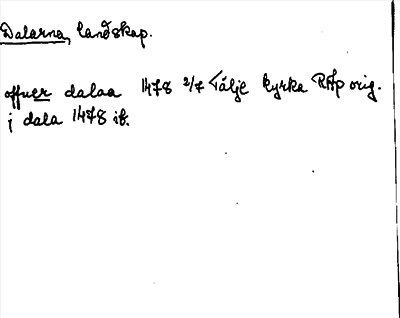 Dalarna, landskap.
offuer dalaa 1478 2/7 Tälje kyrka RAp orig.
j dala 1478 ib.